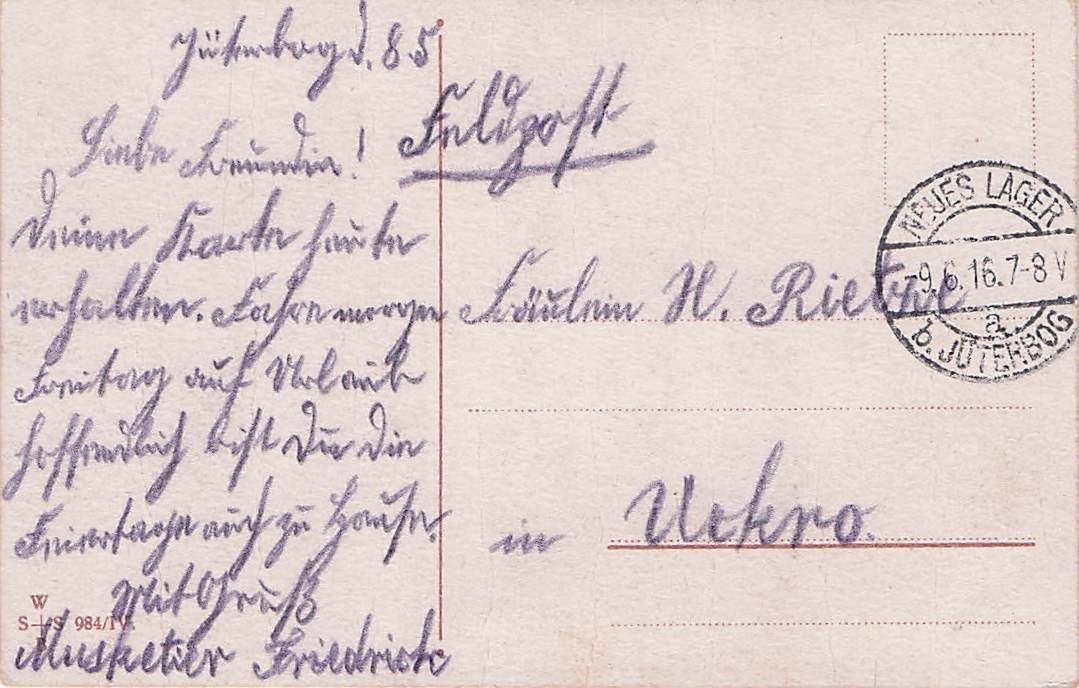 Jüterbog d. 8.5
Liebe Freundin!
Deine Karte heute
erhalten. Fahre morgen
Freitag auf Urlaub
hoffendlich bist Du die
Feiertage auch zu Hause.
Mit Gruß
Musketier Friedrich
Feldpost
Fräulein H. Riethe
in Uckro.
NEUES LAGER
-9.6.16.7-8 V
a
b. JÜTERBOG
W
S+S 984/IV.